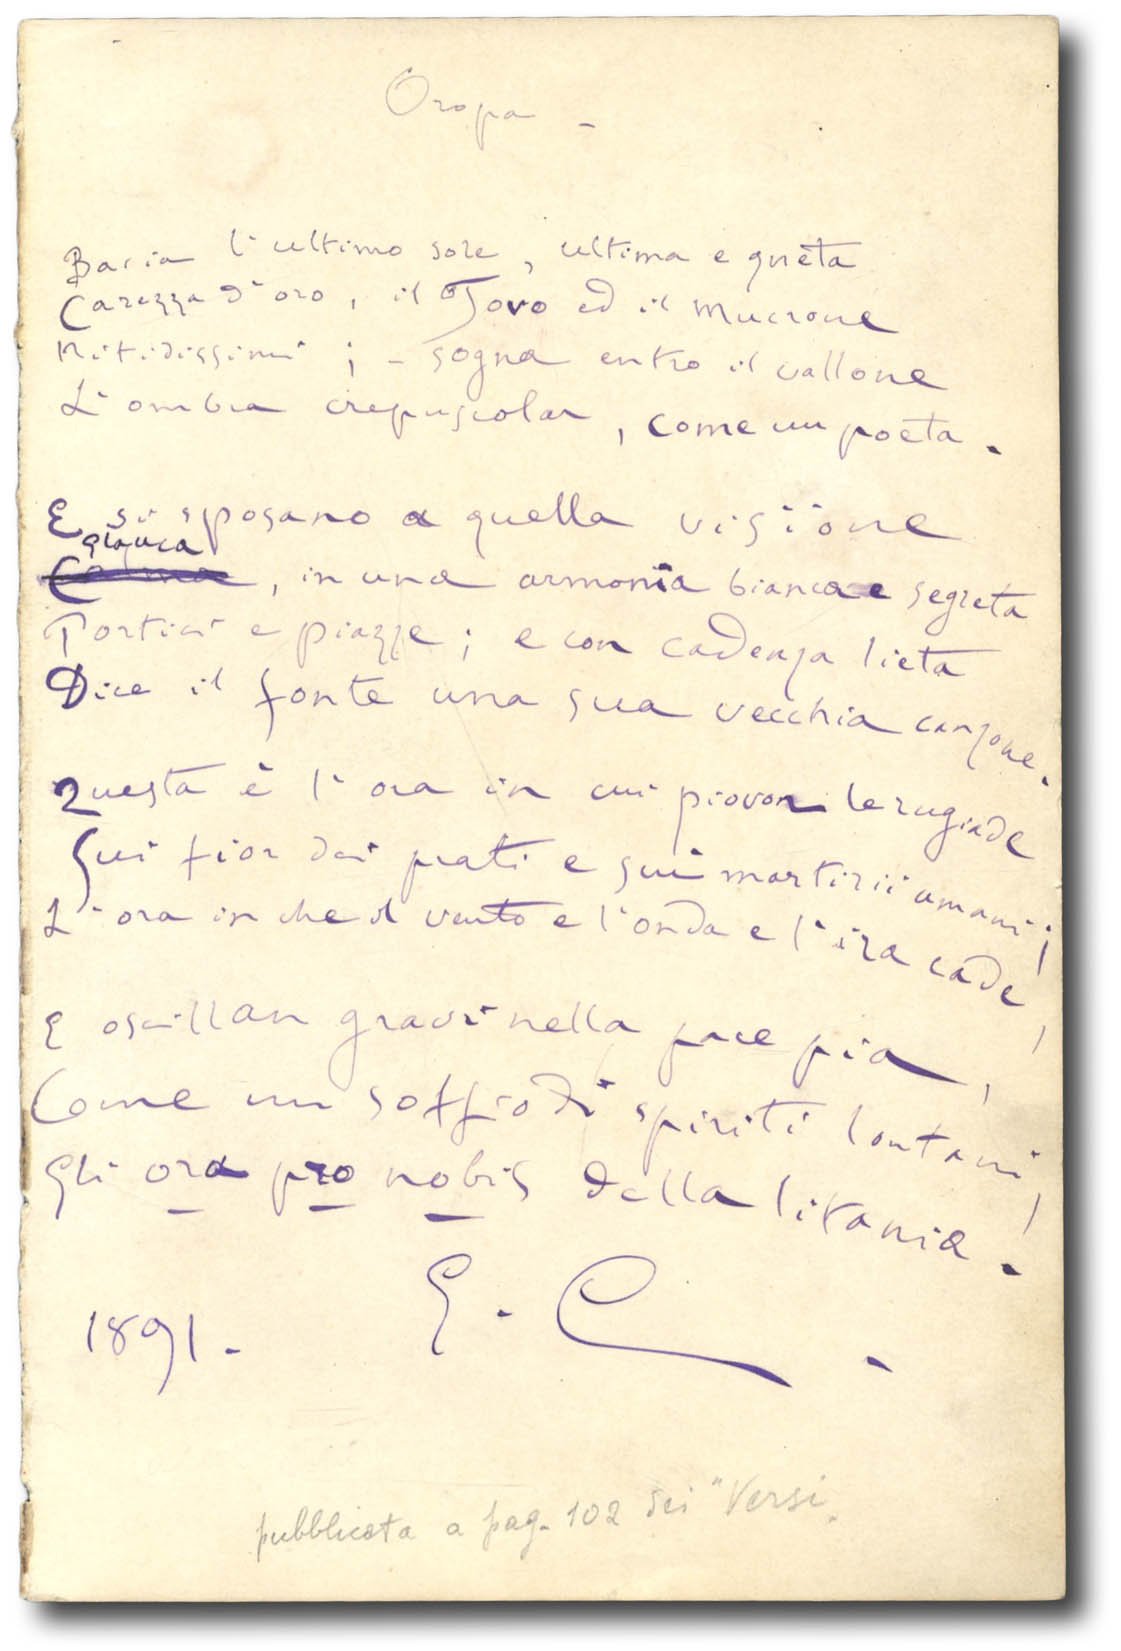 Oropa -
Bacia l'ultimo sole, ultima e queta
Carezza d'oro, il Tovo ed il Mucrone
Nitidissimi; - sogna entro il vallone
L'ombra crepuscolar, come un poeta.
E si sposano a quella visione
glauca
, in una armonia bianca e segreta
Portici e piazze; e con cadenza lieta
Dice il fonte una sua vecchia canzone.
Questa è l'ora in cui piovon le rugiade
Sui fior dei prati e sui martirii umani;
L'ora in che il vento e l'onda e l'ira cade,
E oscillan gravi nella pace pia,
Come un soffio di spiriti lontani,
Gli ora pro nobis della litania.
E. C.
1891.
pubblicata a pag. 102 dei "Versi"